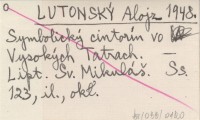 LUTONSKÝ Alojz 1948.
Symbolický cintorín vo
Vysokých Tatrách
Lipt. Sv. Mikuláš. Ss.
123, il., okl.